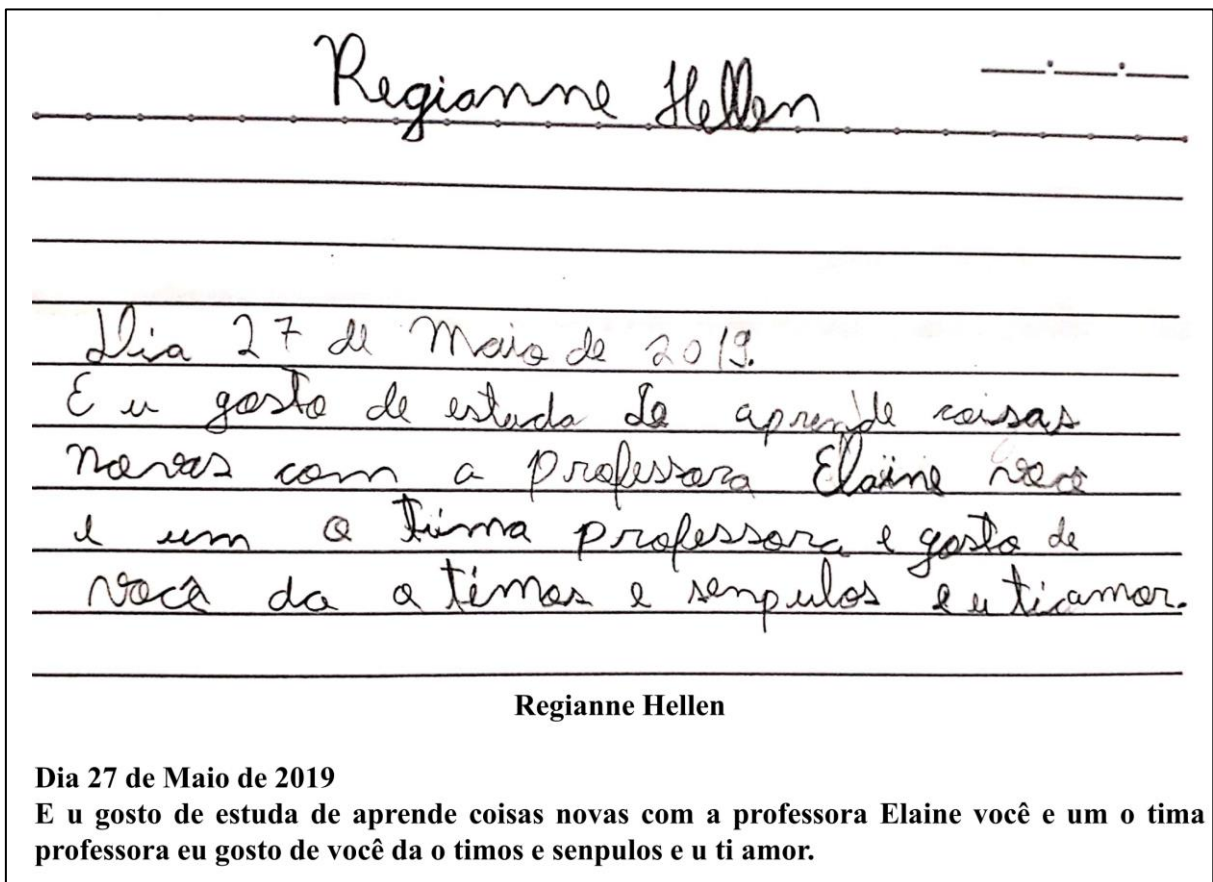 Regianne Hellen
Dia 27 de Maio de 2019.
E u gosto de estuda de aprende coisas
novas com a professora Elaine você
e um o tima professora e gosto de
você da o timos e senpulos e u ti amor.
Regianne Hellen
Dia 27 de Maio de 2019
E u gosto de estuda de aprende coisas novas com a professora Elaine você e um o tima
professora eu gosto de você da o timos e senpulos e u ti amor.